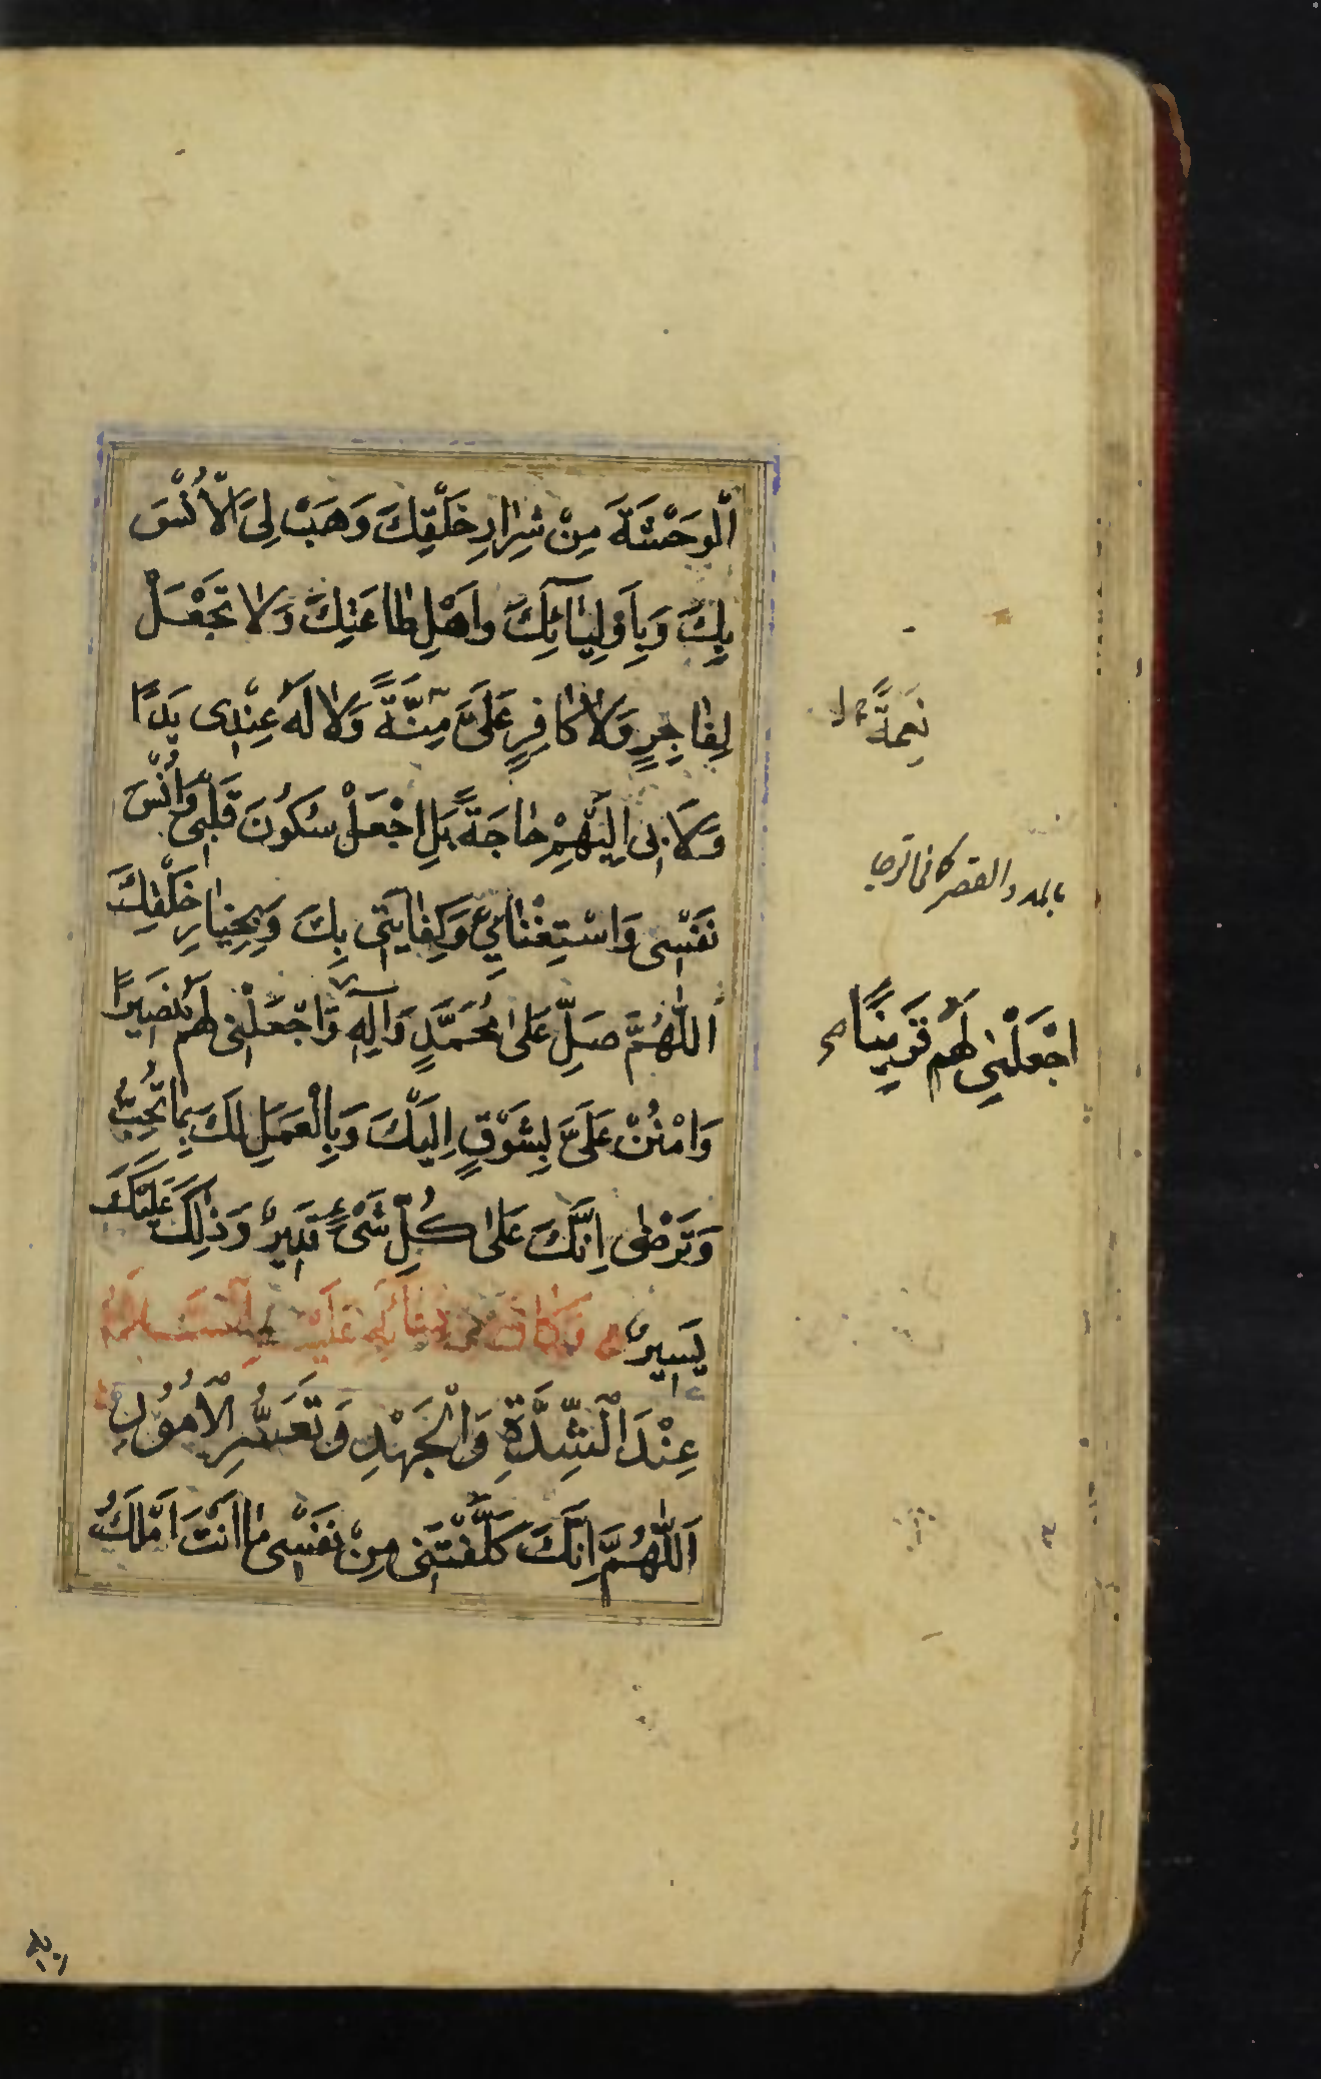 اَلْوَحْشَةَ مِنْ شِرَارِ خَلْقِكَ وَهَبْ لِىَ الْاُنْسَ
بِكَ وَبِاَوْلِيَآئِكَ وَاَهْلِ طَاعَتِكَ وَلَا تَجْعَلْ
لِفَاجِرٍ وَلَا كَافِرٍ عَلَىَّ مِنَّةً وَلَا لَهُ عِنْدِى يَدًا
وَلَا بِى اِلَيْهِمْ حَاجَةً بَلِ اجْعَلْ سُكُونَ قَلْبِى وَاُنْسَ
نَفْسِى وَاسْتِغْنَائِي وَكِفَايَتِى بِكَ وَبِخِيَارِ خَلْقِكَ
اَللّٰهُمَّ صَلِّ عَلَى مُحَمَّدٍ وَآلِهِ وَاجْعَلْنِى لَهُمْ نَصِيرًا
وَامْنُنْ عَلَىَّ بِشَوْقٍ اِلَيْكَ وَبِالْعَمَلِ لَكَ بِمَا تُحِبُّ
وَتَرْضٰى اِنَّكَ عَلَى كُلِّ شَىْءٍ قَدِيرٌ وَذٰلِكَ عَلَيْكَ
يَسِيرٌ وَكَانَ مِنْ دُعَائِهِ عَلَيْهِ السَّلَامُ
عِنْدَ الْشِّدَّةِ وَالْجَهْدِ وَتَعَسُّرِ الْاُمُوْرِ
اَللّٰهُمَّ اِنَّكَ كَلَّفْتَنِى مِنْ نَفْسِى مَا اَنْتَ اَمْلَكُ
نِعْمَةً
بالمد والقصر
اجْعَلْنِى لَهُمْ قَرِينًا